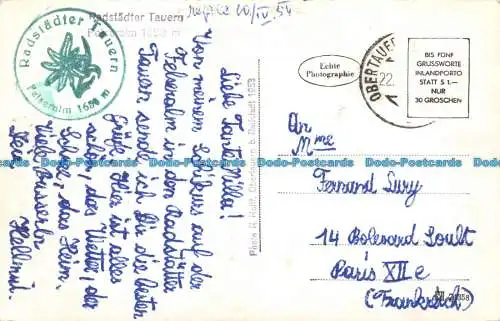 Radstädter Tauern
Felseralm 1650 m
Radstädter Tauern
Felseralm 1650 m
reçue 20/IV. 54
Liebe Tante Milla!
Von meinem Schikurs auf der
Felseralm in den Radstädter
Tauern sende ich Dir die besten
Grüße. Hier ist alles
schön, das Wetter, der
Schnee, das Heim.
Viele Busserln
Dein Hellmut.
Echte
Photographie
OBERTAUERN
22.
1
BIS FÜNF
GRUSSWORTE
INLANDPORTO
STATT S 1.—
NUR
30 GROSCHEN
An
Mme
Fernand Lury
14 Bolevard Soult
Paris XII e
(Frankreich)
Dodo-Postcards Dodo-Postcards Dodo-Postcards Dodo-Postcards
Dodo-Postcards Dodo-Postcards Dodo-Postcards Dodo-Postcards